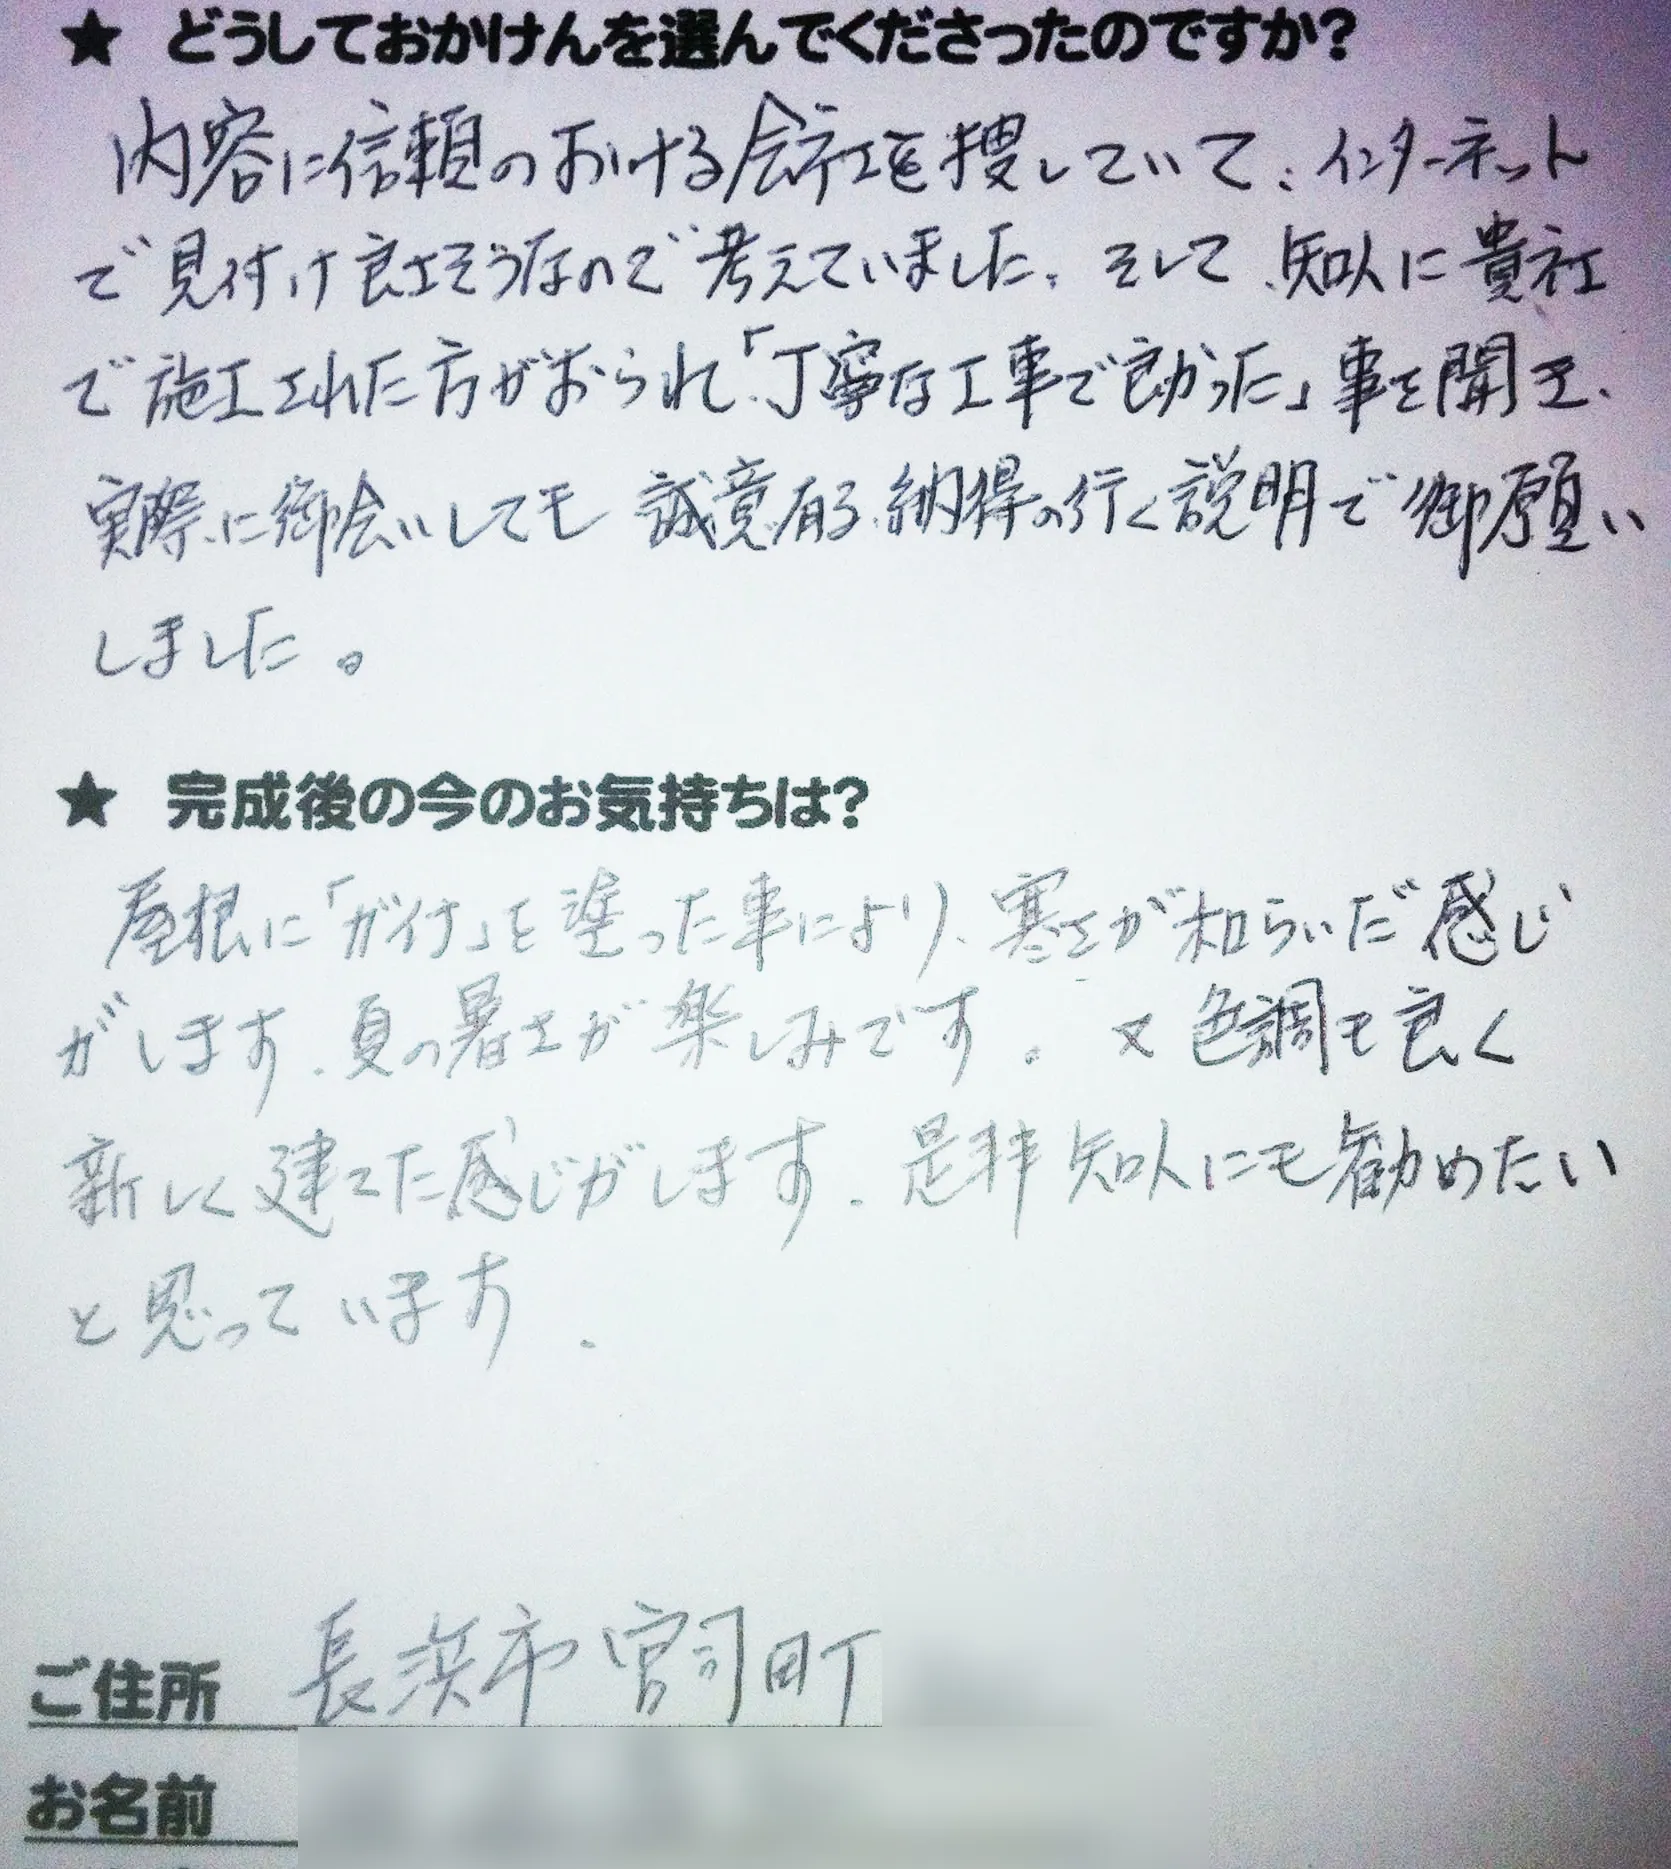 ★ どうしておかけんを選んでくださったのですか?
内容に信頼のおける会社を捜していて、インターネット
で見付け良さそうなので考えていました。そして、知人に貴社
で施工された方がおられ「丁寧な工事で良かった」事を聞き、
実際に御会いしても誠意有る、納得の行く説明で御願い
しました。
★ 完成後の今のお気持ちは?
屋根に「ガイナ」を塗った事により、寒さが和らいだ感じ
がします、夏の暑さが楽しみです。又色調も良く
新しく建てた感じがします。是非知人にも勧めたい
と思っています。
ご住所 長浜市宮司町
お名前